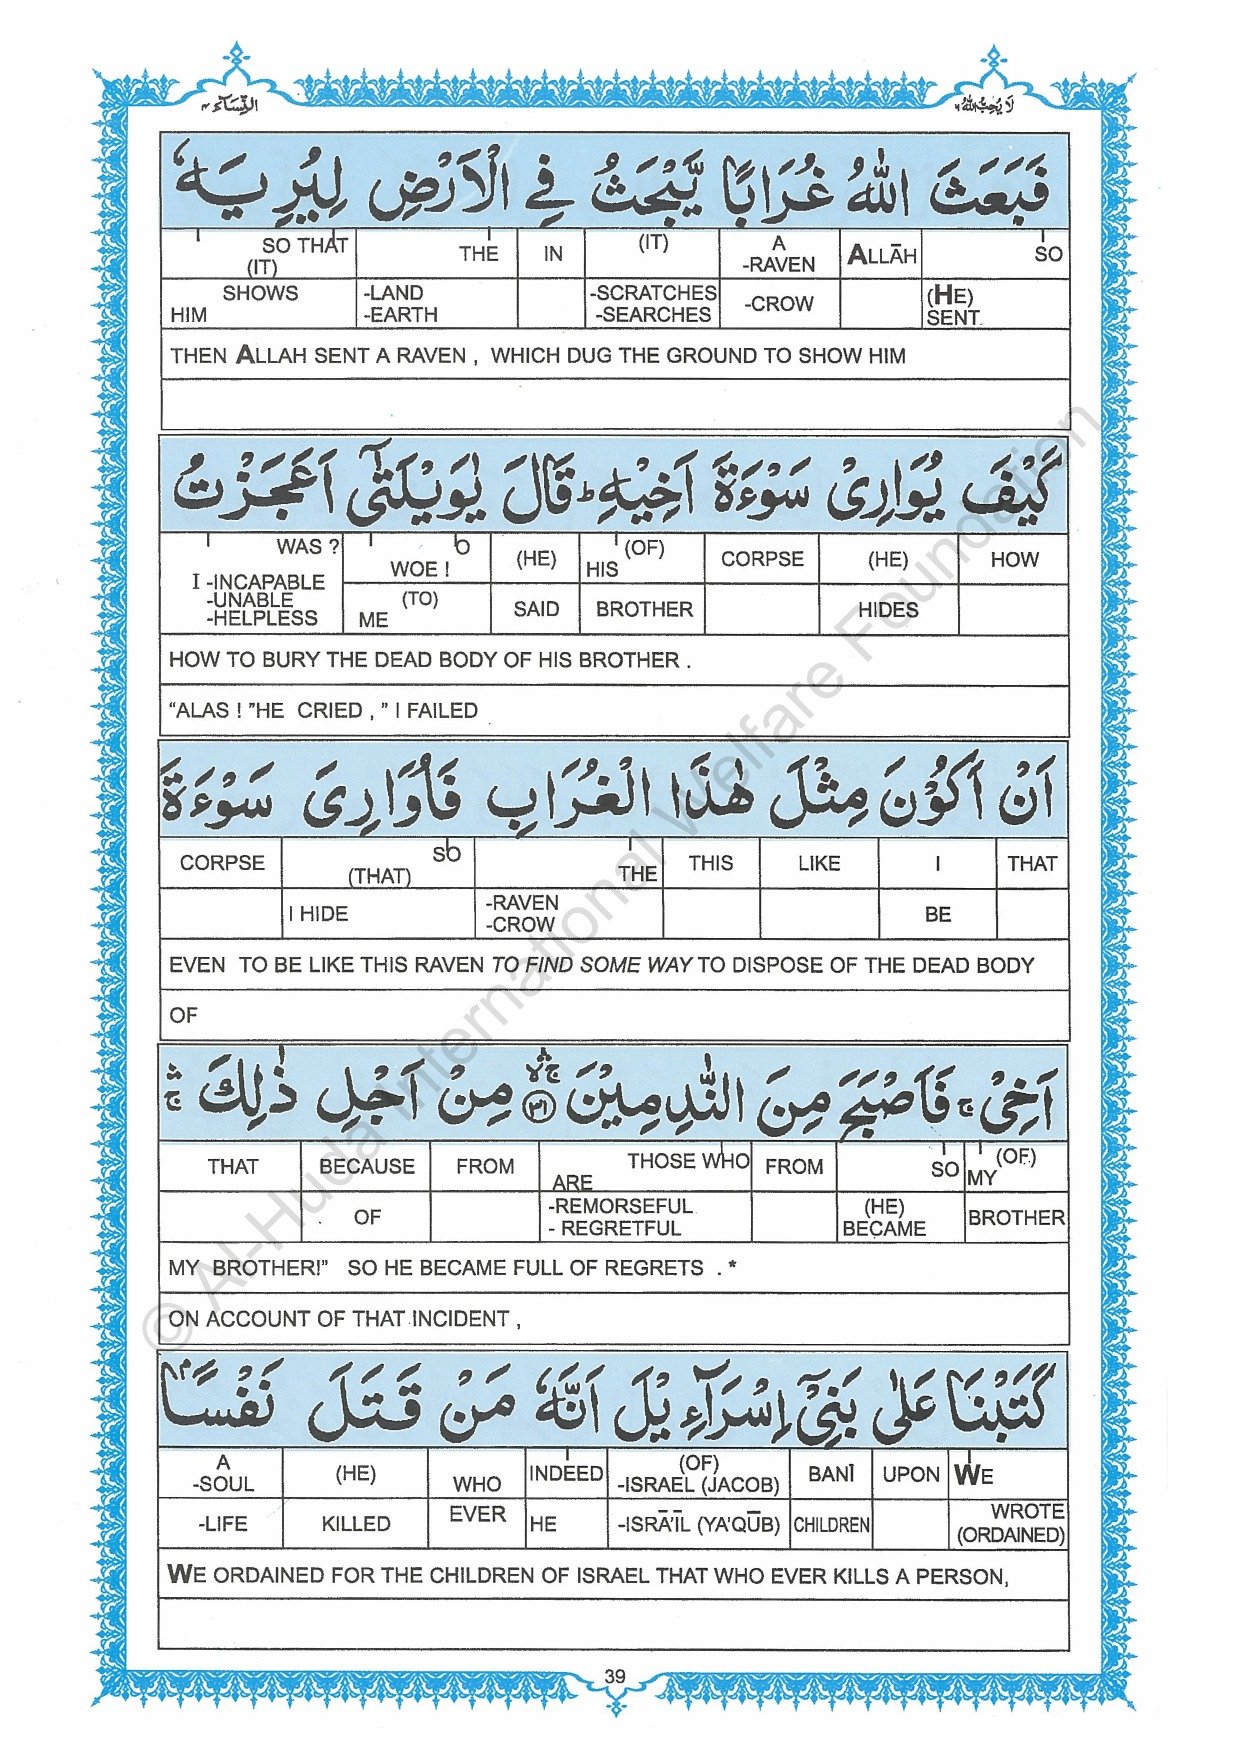 النِّسَآء ٤
لَا يُحِبُّ اللهُ ٦
فَبَعَثَ اللّٰهُ غُرَابًا يَّبْحَثُ فِي الْاَرْضِ لِيُرِيَهٗ
SO THAT (IT) THE IN (IT) A -RAVEN ALLĀH SO
HIM SHOWS -LAND -EARTH -SCRATCHES -SEARCHES -CROW (HE) SENT
THEN ALLAH SENT A RAVEN , WHICH DUG THE GROUND TO SHOW HIM
كَيْفَ يُوَارِيْ سَوْءَةَ اَخِيْهِ ؕ قَالَ يٰوَيْلَتٰٓى اَعَجَزْتُ
WAS ? I -INCAPABLE -UNABLE -HELPLESS O WOE ! (HE) (OF) HIS CORPSE (HE) HOW
ME (TO) SAID BROTHER HIDES
HOW TO BURY THE DEAD BODY OF HIS BROTHER .
“ALAS ! ”HE CRIED , ” I FAILED
اَنْ اَكُوْنَ مِثْلَ هٰذَا الْغُرَابِ فَاُوَارِيَ سَوْءَةَ
CORPSE SO (THAT) THE THIS LIKE I THAT
I HIDE -RAVEN -CROW BE
EVEN TO BE LIKE THIS RAVEN TO FIND SOME WAY TO DISPOSE OF THE DEAD BODY
OF
اَخِيْ ۚ فَاَصْبَحَ مِنَ النّٰدِمِيْنَ ۚۙ ۛ ﴿٣١﴾ مِنْ اَجْلِ ذٰلِكَ ۚ ۛ
THAT BECAUSE FROM THOSE WHO ARE FROM SO (OF) MY
OF -REMORSEFUL - REGRETFUL (HE) BECAME BROTHER
MY BROTHER!” SO HE BECAME FULL OF REGRETS . *
ON ACCOUNT OF THAT INCIDENT ,
كَتَبْنَا عَلٰى بَنِيْٓ اِسْرَآءِيْلَ اَنَّهٗ مَنْ قَتَلَ نَفْسًاۢ
A -SOUL (HE) WHO INDEED (OF) -ISRAEL (JACOB) BANĪ UPON WE
-LIFE KILLED EVER HE -ISRĀ'ĪL (YA'QŪB) CHILDREN WROTE (ORDAINED)
WE ORDAINED FOR THE CHILDREN OF ISRAEL THAT WHO EVER KILLS A PERSON,
39
© Al-Huda International Welfare Foundation